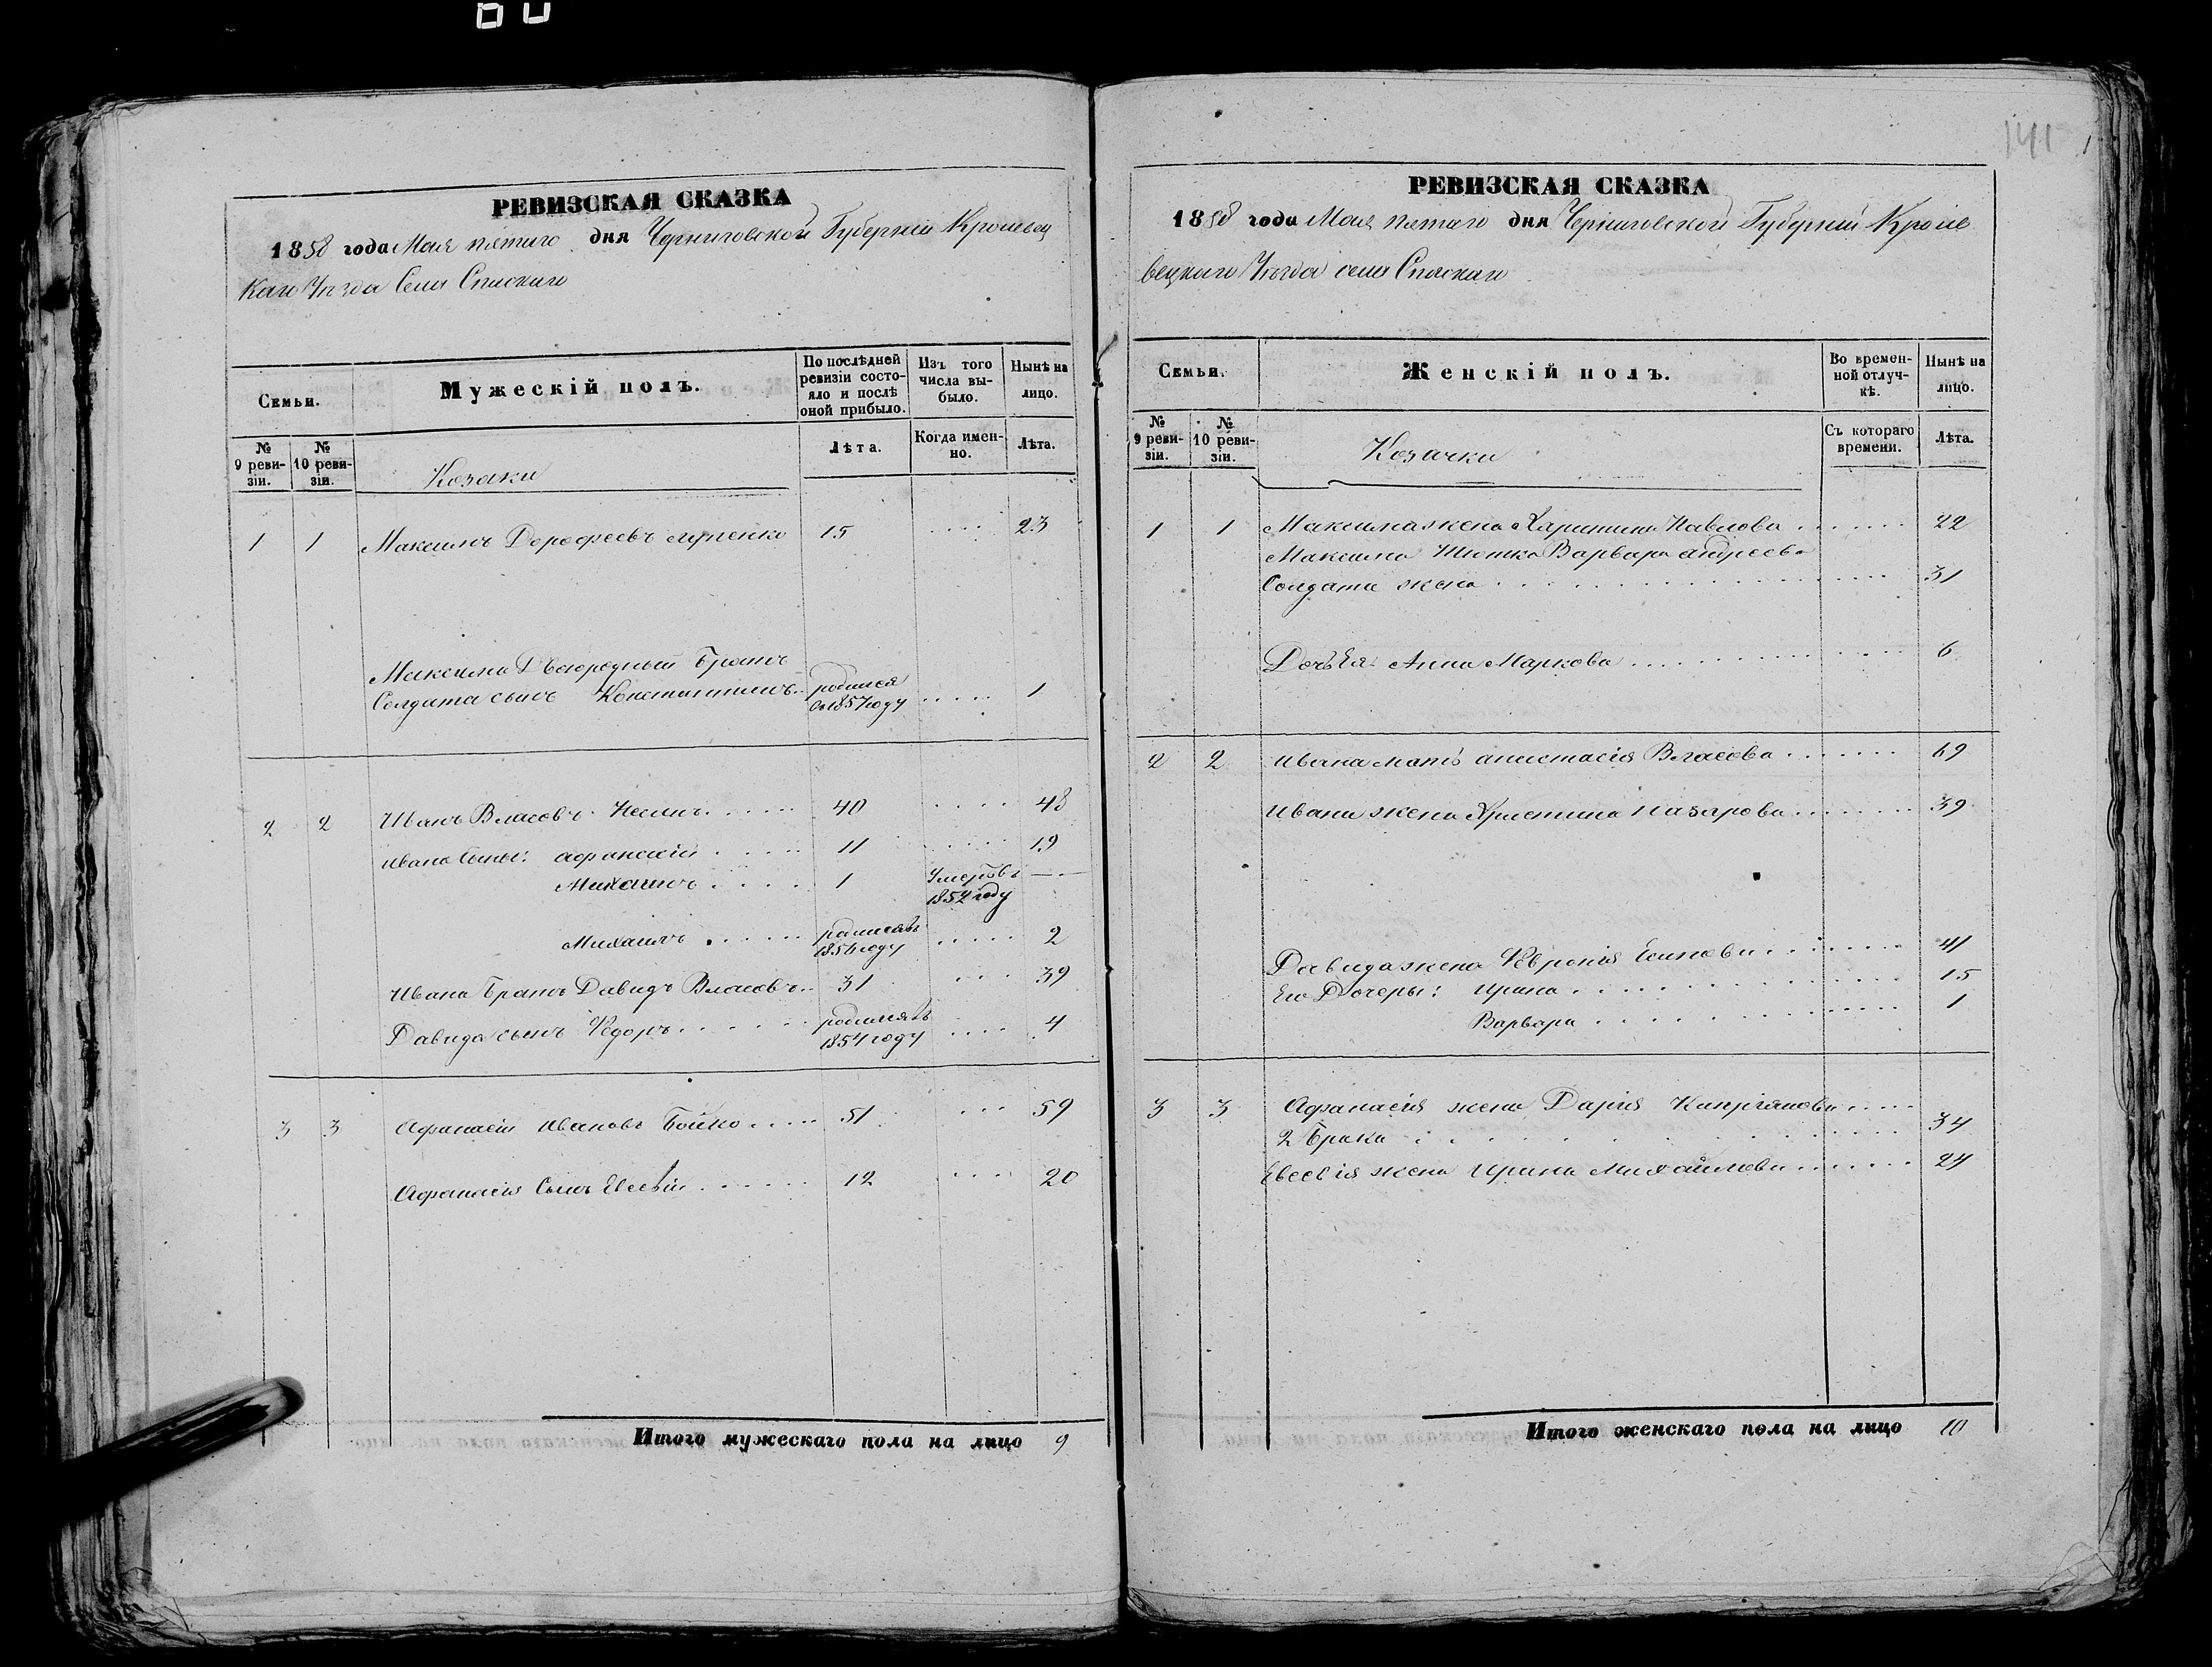 141
РЕВИЗСКАЯ СКАЗКА
1858 года Мая пятаго дня Черниговской Губернии Кролевец
каго Уѣзда Села Спаскаго
Семьи.
Мужескій полъ.
По послѣдней ревизіи состояло и послѣ оной прибыло.
Изъ того числа выбыло.
Нынѣ на лицо.
№ 9 ревизіи.
№ 10 ревизіи.
Козаки
Лѣта.
Когда именно.
Лѣта.
1 1 Максимъ Дорофеевъ 15 23
Максима Двоюродный Братъ
Солдата сынъ Константинъ родился въ 1857 году 1
2 2 Иванъ Власовъ 40 48
Ивана Сыны: Афанасій 11 19
Михаилъ 1 Умеръ въ 1852 году —
Михаилъ родился въ 1856 году 2
Ивана Братъ Давидъ Власовъ 31 39
Давида сынъ Федоръ родился въ 1854 году 4
3 3 Афанасій Ивановъ Бойко 51 59
Афанасія Сынъ Евсевій 12 20
Итого мужескаго пола на лицо 9
РЕВИЗСКАЯ СКАЗКА
1858 года Мая пятаго дня Черниговской Губернии Кроле
вецкаго Уѣзда села Спаскаго
Семьи.
Женскій полъ.
Во временной отлучкѣ.
Нынѣ на лицо.
№ 9 ревизіи.
№ 10 ревизіи.
Козачки
Съ котораго времени.
Лѣта.
1 1 Максима жена Харитина Павлова 22
Максима Тютка Варвара Андреева
Солдата жена 31
Дочь Ея Анна Маркова 6
2 2 Ивана мать Анастасія Власова 69
Ивана жена Христина Назарова 39
Давида жена Февронія Есипова 41
Его Дочеры: Ирина 15
Варвара 1
3 3 Афанасія жена Дарія Кипріянова
2 Брака 34
Евсевія жена Ирина Михайлова 24
Итого женскаго пола на лицо 10